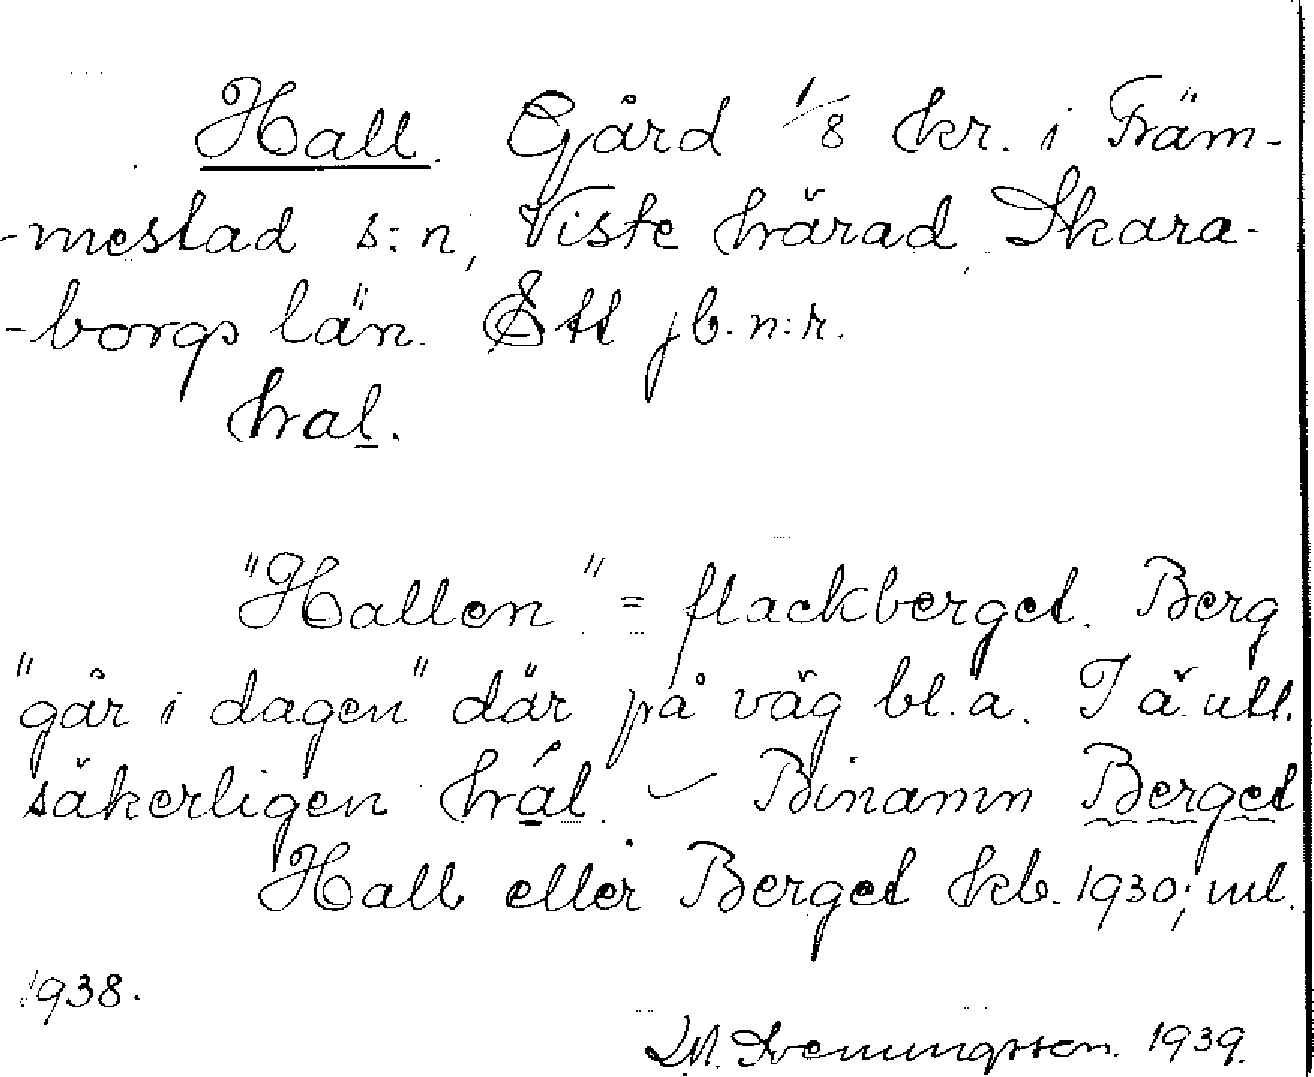 Hall. Gård 1/8 kr. i Främ-
-mestad s:n, Viste härad, Skara-
-borgs län. Ett jb. n:r.
hal.
"Hallen" = flackberget. Berg
"går i dagen" där på väg bl.a. I ä. utt.
säkerligen hál. – Binamn Berget
Hall eller Berget kb. 1930; ml.
1938.
1939.